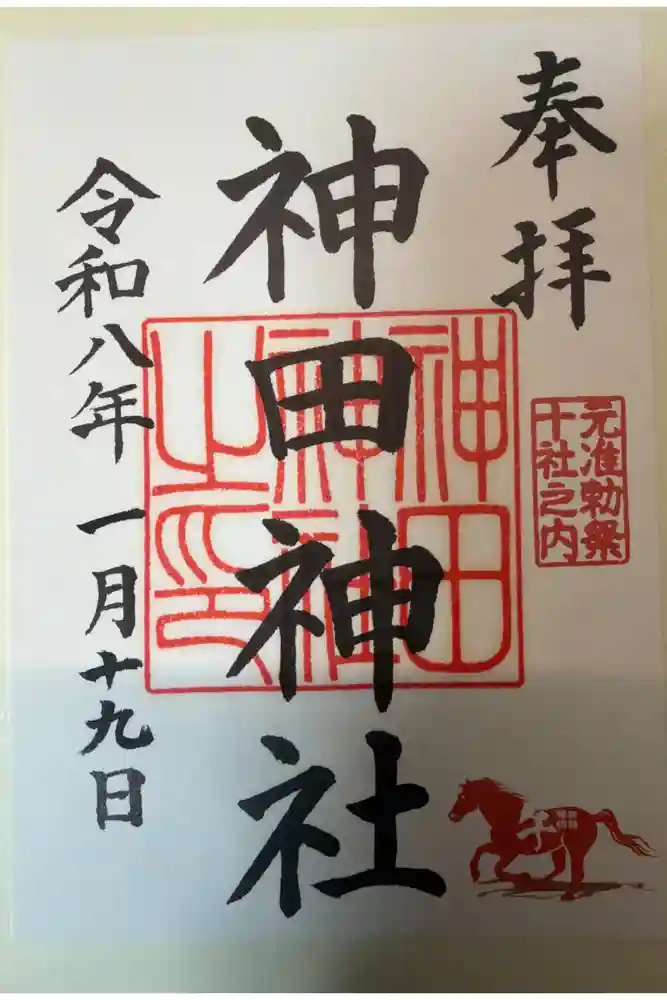 奉拝
元准勅祭
十社之内
神田神社
神田
神社
之印
令和八年 一月十九日